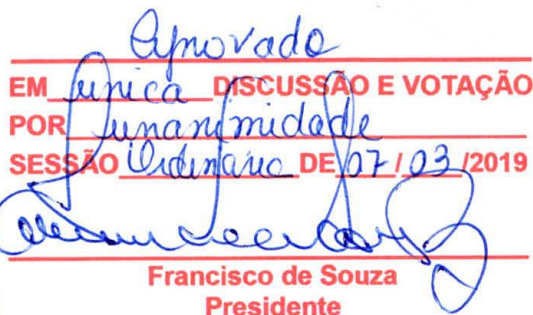 Aprovado
EM única DISCUSSÃO E VOTAÇÃO
POR unanimidade
SESSÃO Ordinária DE 07/03/2019
Francisco de Souza
Presidente